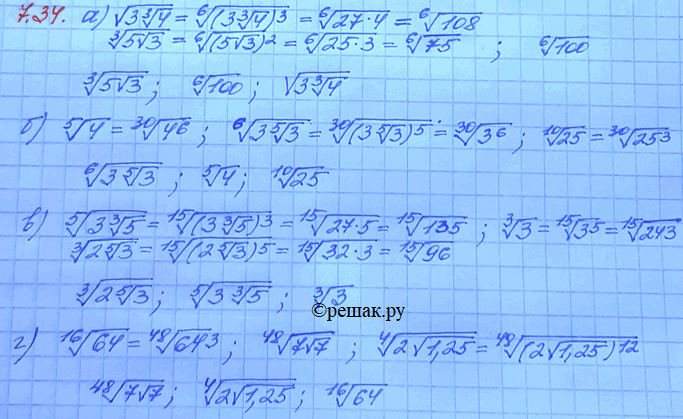 7.34. а) √(3∛4) = ⁶√((3∛4)³) = ⁶√(27·4) = ⁶√108
∛(5√3) = ⁶√((5√3)²) = ⁶√(25·3) = ⁶√75 ; ⁶√100
∛(5√3) ; ⁶√100 ; √(3∛4)
б) ⁵√4 = ³⁰√(4⁶) ; ⁶√(3⁵√3) = ³⁰√((3⁵√3)⁵) = ³⁰√(3⁶) ; ¹⁰√25 = ³⁰√(25³)
⁶√(3⁵√3) ; ⁵√4 ; ¹⁰√25
в) ⁵√(3∛5) = ¹⁵√((3∛5)³) = ¹⁵√(27·5) = ¹⁵√135 ; ∛3 = ¹⁵√(3⁵) = ¹⁵√243
∛(2⁵√3) = ¹⁵√((2⁵√3)⁵) = ¹⁵√(32·3) = ¹⁵√96
∛(2⁵√3) ; ⁵√(3∛5) ; ∛3
©решак.ру
г) ¹⁶√64 = ⁴⁸√(64³) ; ⁴⁸√(7√7) ; ⁴√(2√1,25) = ⁴⁸√((2√1,25)¹²)
⁴⁸√(7√7) ; ⁴√(2√1,25) ; ¹⁶√64